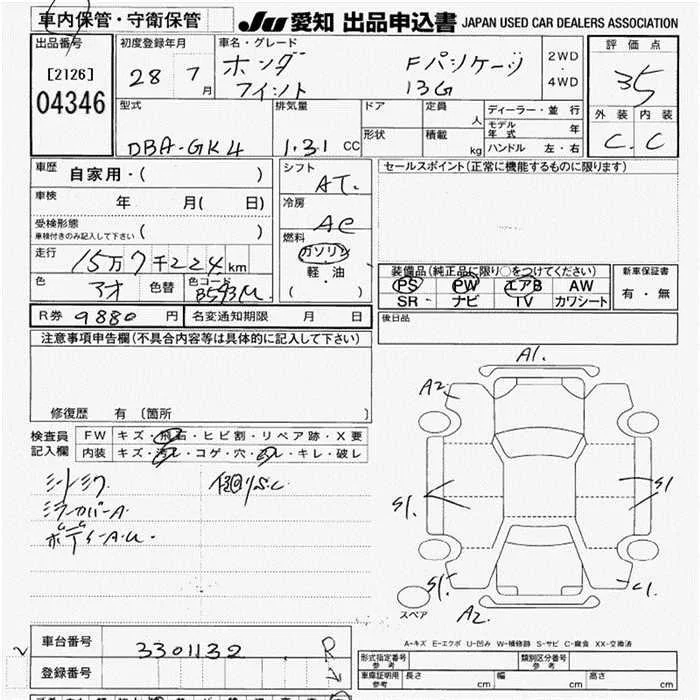 車内保管・守衛保管
JU 愛知 出品申込書 JAPAN USED CAR DEALERS ASSOCIATION
出品番号
[2126]
04346
初度登録年月
28 7月
車名・グレード
ホンダ Fパッケージ
フィット 13G
2WD
・
4WD
評価点
35
外装 内装
C. C
型式
DBA-GK4
排気量
1.31 CC
ドア
形状
定員 人
積載 kg
ディーラー・並行
モデル年式 年
ハンドル 左・右
車歴 自家用・( )
車検 年 月( 日)
受検形態
車検付きのみ記入して下さい ( )
走行 15万7千224km
色 アオ 色替 色コード B593M
シフト
AT.
冷房
AC
燃料
ガソリン
・
軽油
・
( )
セールスポイント(正常に機能するものに限ります)
装備品(純正品に限り○をつけてください)
PS PW エアB AW
SR ナビ TV カワシート
新車保証書
有・無
後日品
R券 9880 円 名変通知期限 月 日
注意事項申告欄(不具合内容等は具体的に記入して下さい)
修復歴 有 〔箇所 〕
検査員記入欄
FW キズ・飛石・ヒビ割・リペア跡・X要
内装 キズ・汚レ・コゲ・穴・スレ・キレ・破レ
ミラーカバーA
ボディーA.U.
A1.
A2
S1.
S1
S1.
C1.
A2.
スペア
A-キズ E-エクボ U-凹み W-補修跡 S-サビ C-腐食 XX-交換済
車台番号 3301132
登録番号
R
2
形式指定番号 参考
類別区分番号 参考
車庫証明用 参考 長さ cm 幅 cm 高さ cm